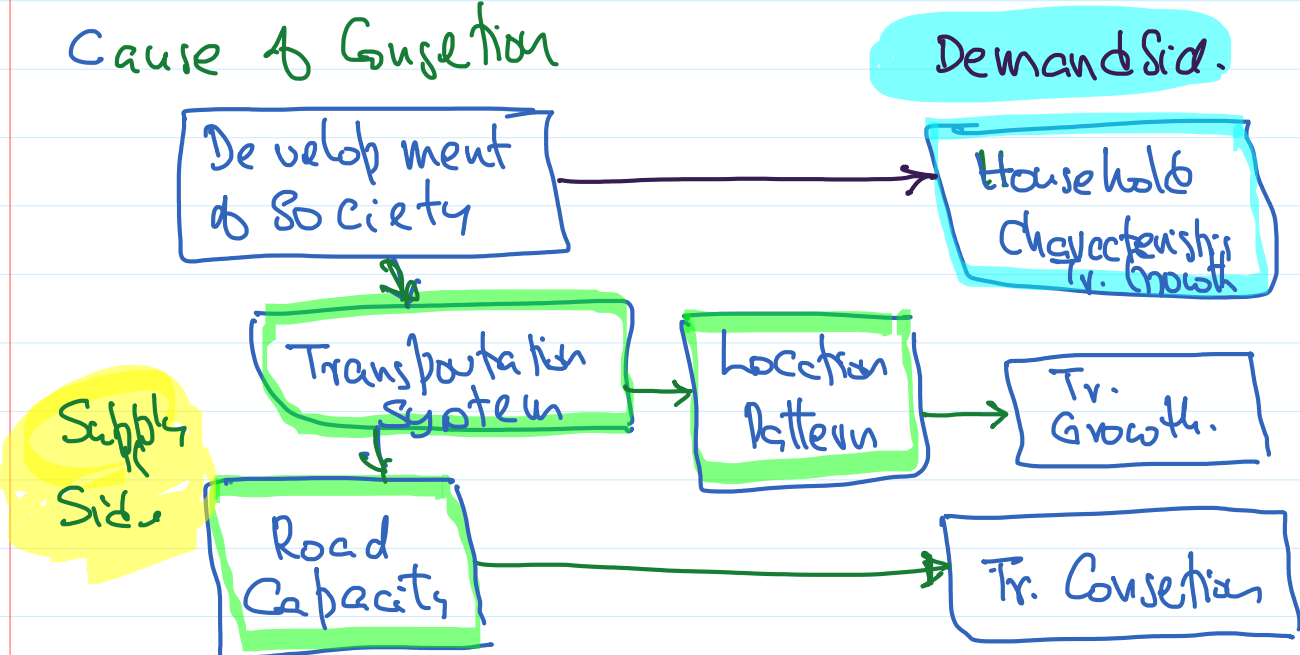 Cause of Consetion
Demand Sid.
Development
of Society
Household
Characteristis
Tr. Growth
Transportation
system
Location
Pattern
Tr.
Growth.
Supply
Side
Road
Capacity
Tr. Consetion